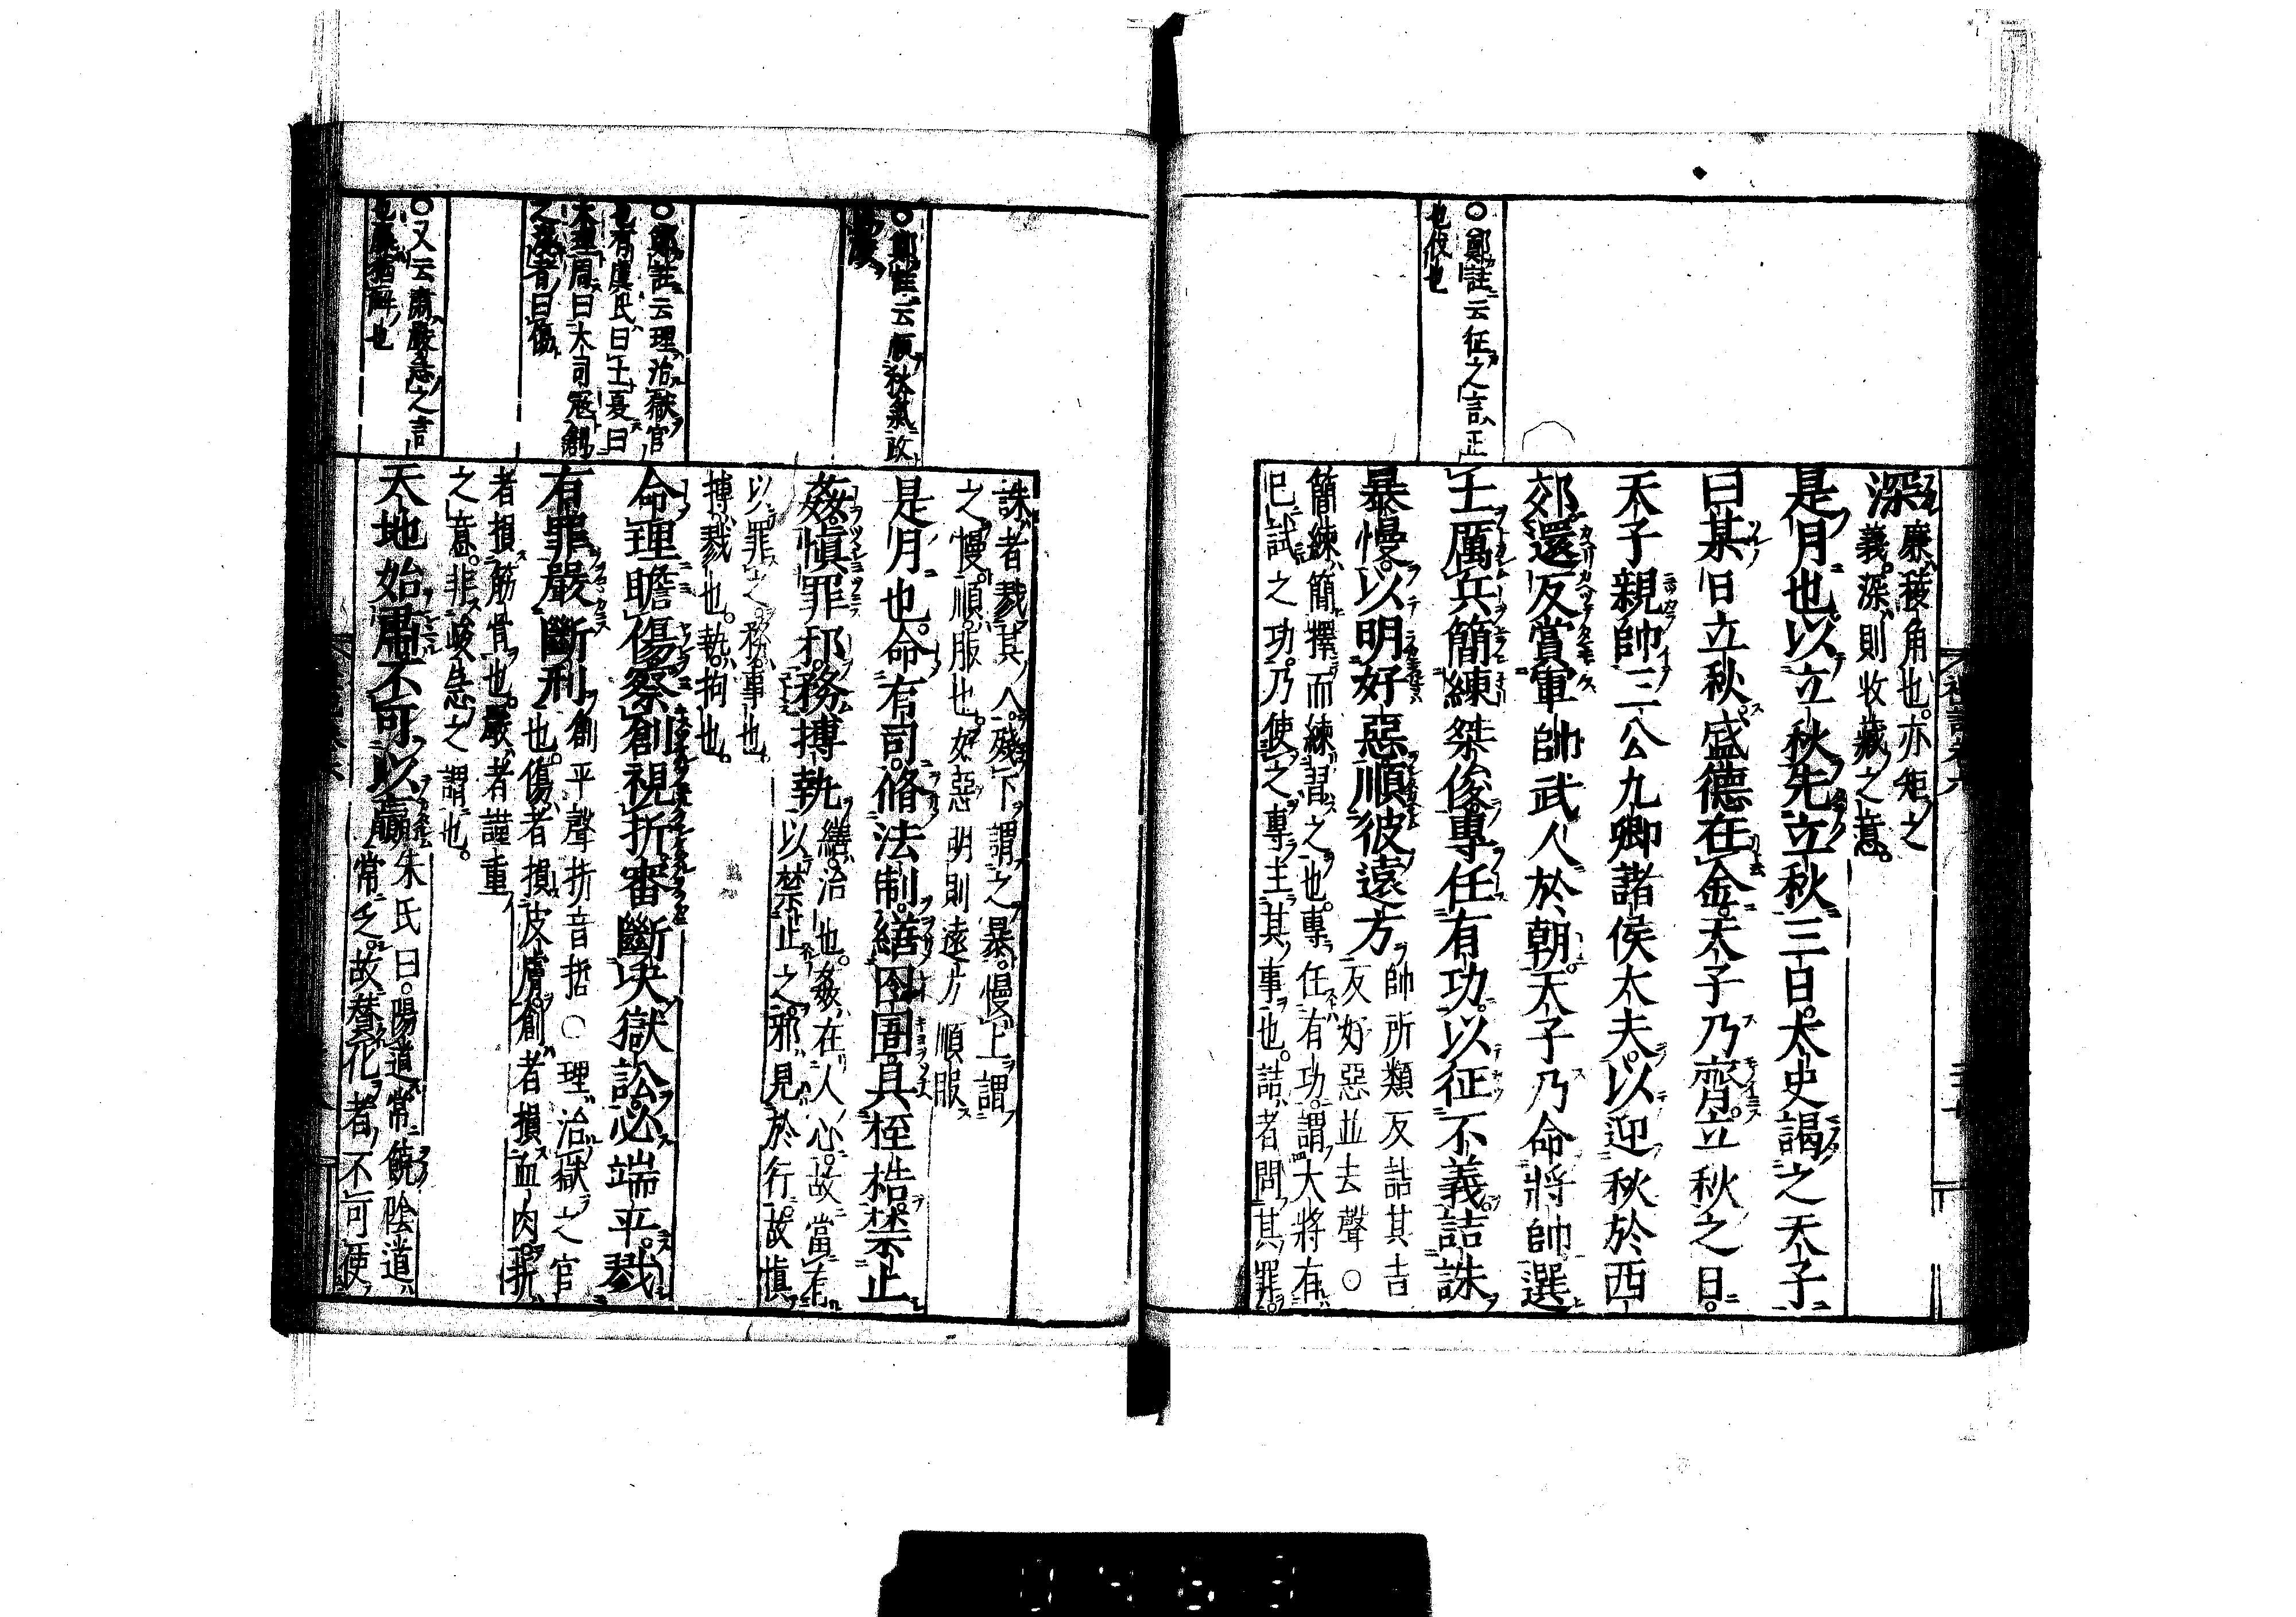 ○鄭註云征之言正
也伐也
深 廉稜角也亦矩之
義深則收藏之意
是月也以立秋先立秋三日太史謁之天子
曰某日立秋盛德在金天子乃齊立秋之日
天子親帥三公九卿諸侯大夫以迎秋於西
郊還反賞軍帥武人於朝天子乃命將帥選
士厲兵簡練桀俊專任有功以征不義詰誅
暴慢以明好惡順彼遠方 帥所類反詰其吉
反好惡並去聲○
簡練簡擇而練習之也專任有功謂大將有
已試之功乃使之專主其事也詰者問其罪
○鄭註云順秋氣政
○鄭註云理治獄官
也有虞氏曰士夏曰
大理周曰大司寇創
之淺者曰傷
○又云肅嚴急之言
也贏猶解也
誅者戮其人殘下謂之暴慢上謂
之慢順服也好惡明則遠方順服
是月也命有司脩法制繕囹圄具桎梏禁止
姦愼罪邪務搏執 繕治也姦在人心故當有
以禁止之邪見於行故愼
以罪之務事也
搏戮也執拘也
命理瞻傷察創視折審斷決獄訟必端平戮
有罪嚴斷刑 創平聲折音哲○理治獄之官
也傷者損皮膚創者損血肉折
者損筋骨也嚴者謹重
之意非峻急之謂也
天地始肅不可以贏 朱氏曰陽道常饒陰道
常乏故贊化者不可使